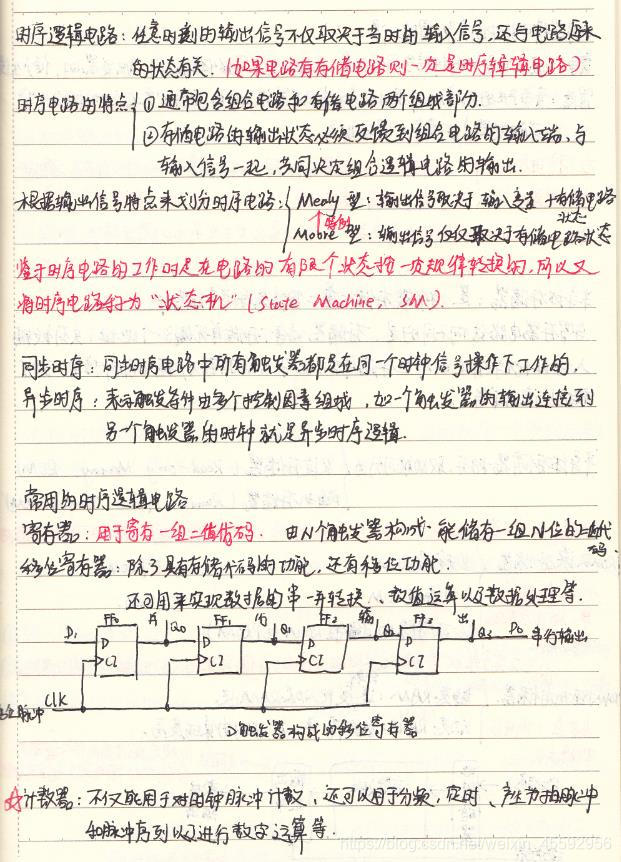 时序逻辑电路：任意时刻的输出信号不仅取决于当时的输入信号，还与电路原来
的状态有关.（如果电路有存储电路则一定是时序逻辑电路）
时序电路的特点 ① 通常包含组合电路和存储电路两个组成部分.
② 存储电路的输出状态必须反馈到组合电路的输入端，与
输入信号一起，共同决定组合逻辑电路的输出.
根据输出信号特点来划分时序电路： Mealy 型：输出信号取决于输入变量+存储电路
状态
特例
Moore 型：输出信号仅仅取决于存储电路状态
鉴于时序电路的工作时是在电路的有限个状态按一定规律转换的，所以又
将时序电路称为“状态机”(State Machine, SM).
同步时序：同步时序电路中所有触发器都是在同一个时钟信号操作下工作的.
异步时序：表示触发条件由多个控制因素组成，如一个触发器的输出连接到
另一个触发器的时钟就是异步时序逻辑.
常用的时序逻辑电路
寄存器：用于寄存一组二值代码. 由N个触发器构成.能储存一组N位的二值代
码.
移位寄存器：除了具有存储代码的功能，还有移位功能
还可用来实现数据的串-并转换、数值运算以及数据处理等.
FF0 并 FF1 行 FF2 输 FF3 出
D1 D Q0 D Q1 D Q2 D Q3 D0 串行输出
C1 C1 C1 C1
CLK
脉冲
D触发器构成的移位寄存器
计数器：不仅能用于对时钟脉冲计数、还可以用于分频，定时、产生节拍脉冲
和脉冲序列以及进行数字运算等.
https://blog.csdn.net/weixin_45592956